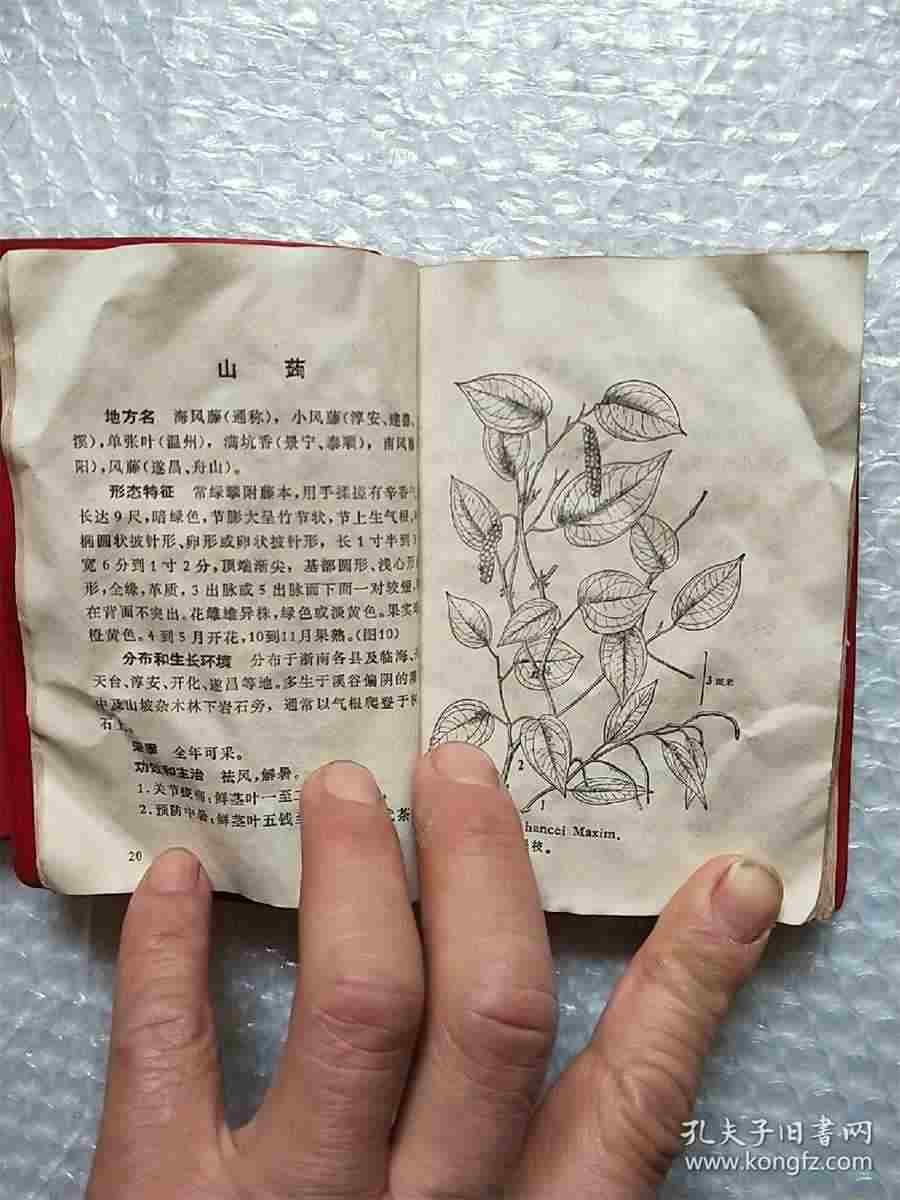 山蒟
地方名 海风藤(通称), 小风藤(淳安、建德、
溪),单张叶(温州), 满坑香(景宁、泰顺), 南风
阳),风藤(遂昌、舟山)。
形态特征 常绿攀附藤本,用手揉搓有辛香气
长达9尺,暗绿色,节膨大呈竹节状,节上生气根,
椭圆状披针形、卵形或卵状披针形, 长1寸半到
宽6分到1寸2分,顶端渐尖, 基部圆形、浅心形
形,全缘,革质,3出脉或5出脉而下面一对较短,
在背面不突出。花雌雄异株,绿色或淡黄色。果实
橙黄色。4到5月开花,10到11月果熟。(图10)
分布和生长环境 分布于浙南各县及临海、
天台、淳安、开化、遂昌等地。多生于溪谷偏阴的
中及山坡杂木林下岩石旁, 通常以气根爬登于
石上。
采集 全年可采。
功效和主治 祛风,解暑。
1.关节疼痛:鲜茎叶一至
2.预防中暑:鲜茎叶五钱 茶
20
3厘米
2
1
hancei Maxim.
枝。
孔夫子旧書网
www.kongfz.com